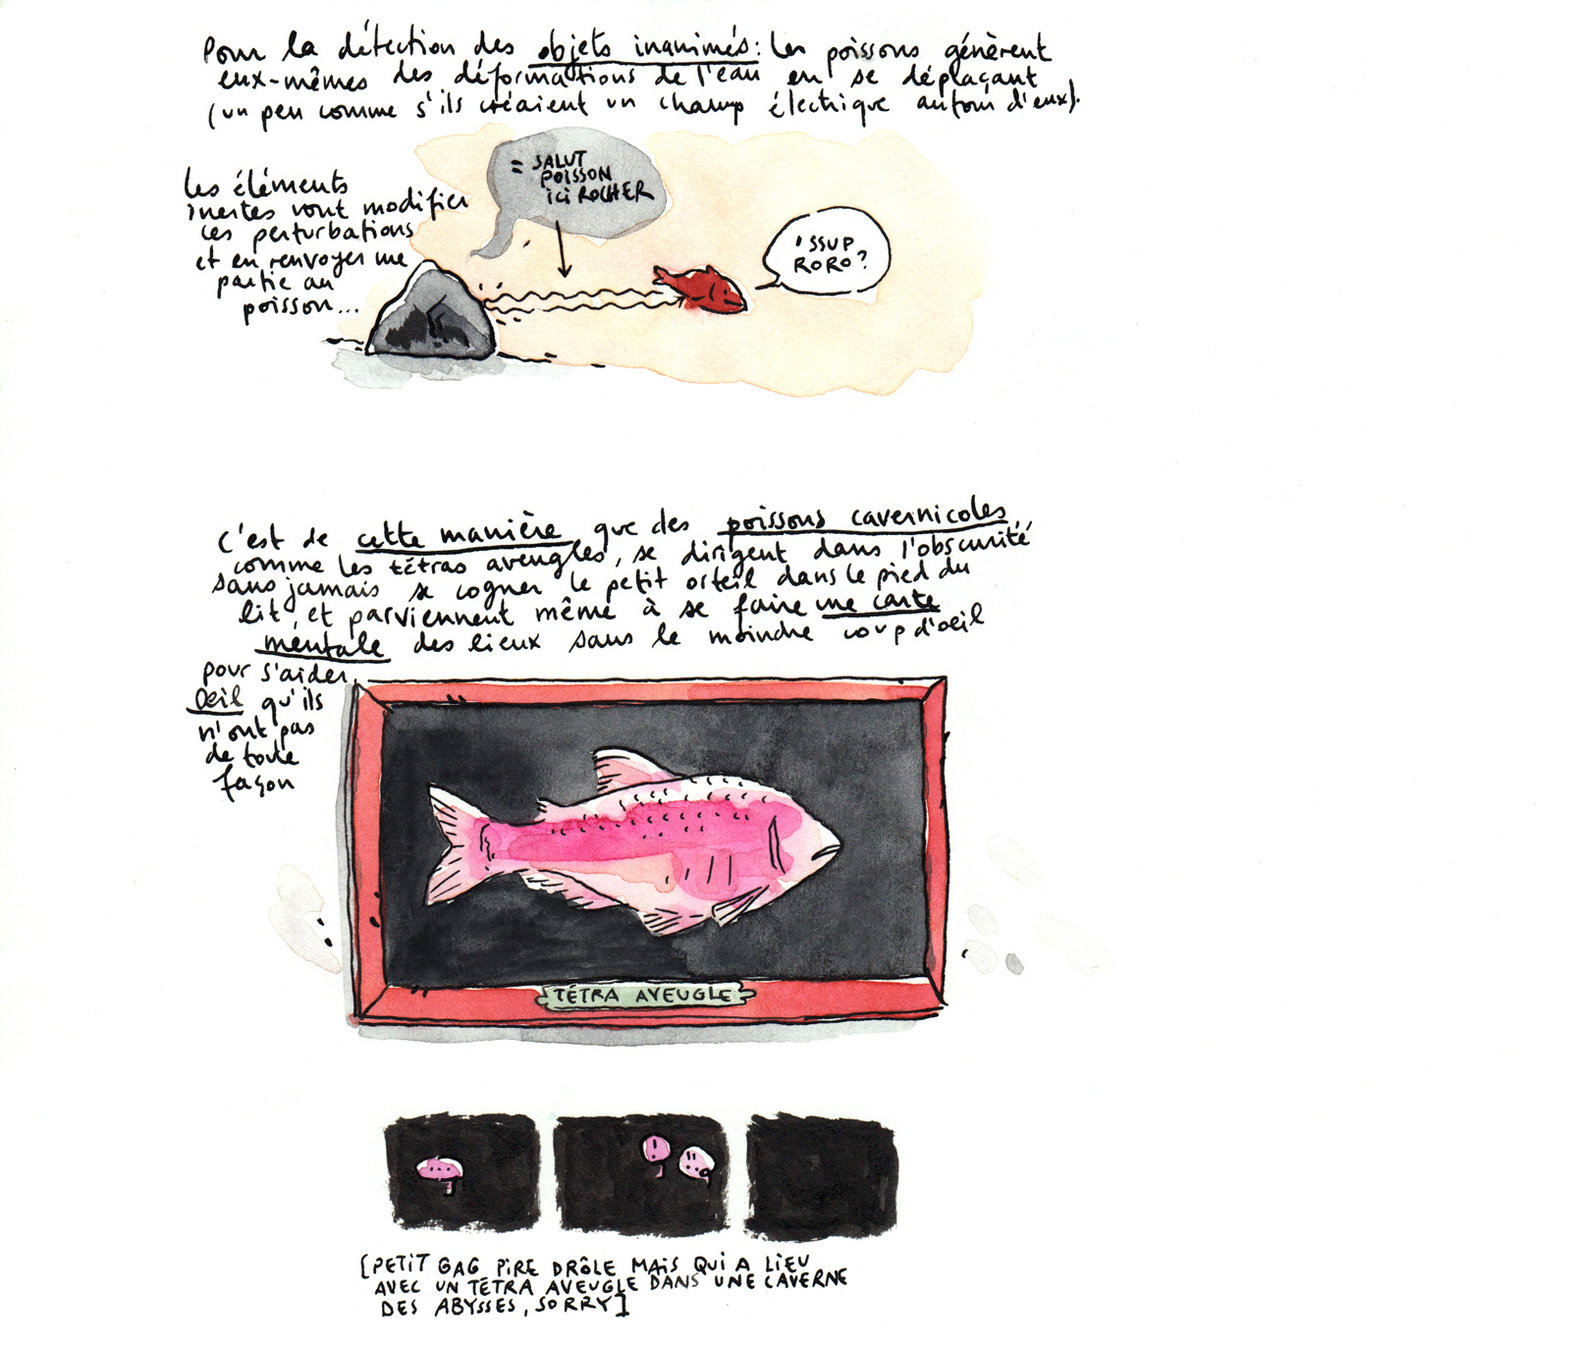 Pour la détection des objets inanimés : les poissons génèrent
eux-mêmes des déformations de l'eau en se déplaçant
(un peu comme s'ils créaient un champ électrique autour d'eux).
Les éléments
inertes vont modifier
ces perturbations
et en renvoyer une
partie au
poisson...
= SALUT
POISSON
ici ROCHER
'SSUP
RORO ?
C'est de cette manière que des poissons cavernicoles,
comme les tétras aveugles, se dirigent dans l'obscurité
sans jamais se cogner le petit orteil dans le pied du
lit, et parviennent même à se faire une carte
mentale des lieux sans le moindre coup d'oeil
pour s'aider.
Oeil qu'ils
n'ont pas
de toute
façon
TÉTRA AVEUGLE
!
!!
[PETIT GAG PIRE DRÔLE MAIS QUI A LIEU
AVEC UN TÉTRA AVEUGLE DANS UNE CAVERNE
DES ABYSSES, SORRY]